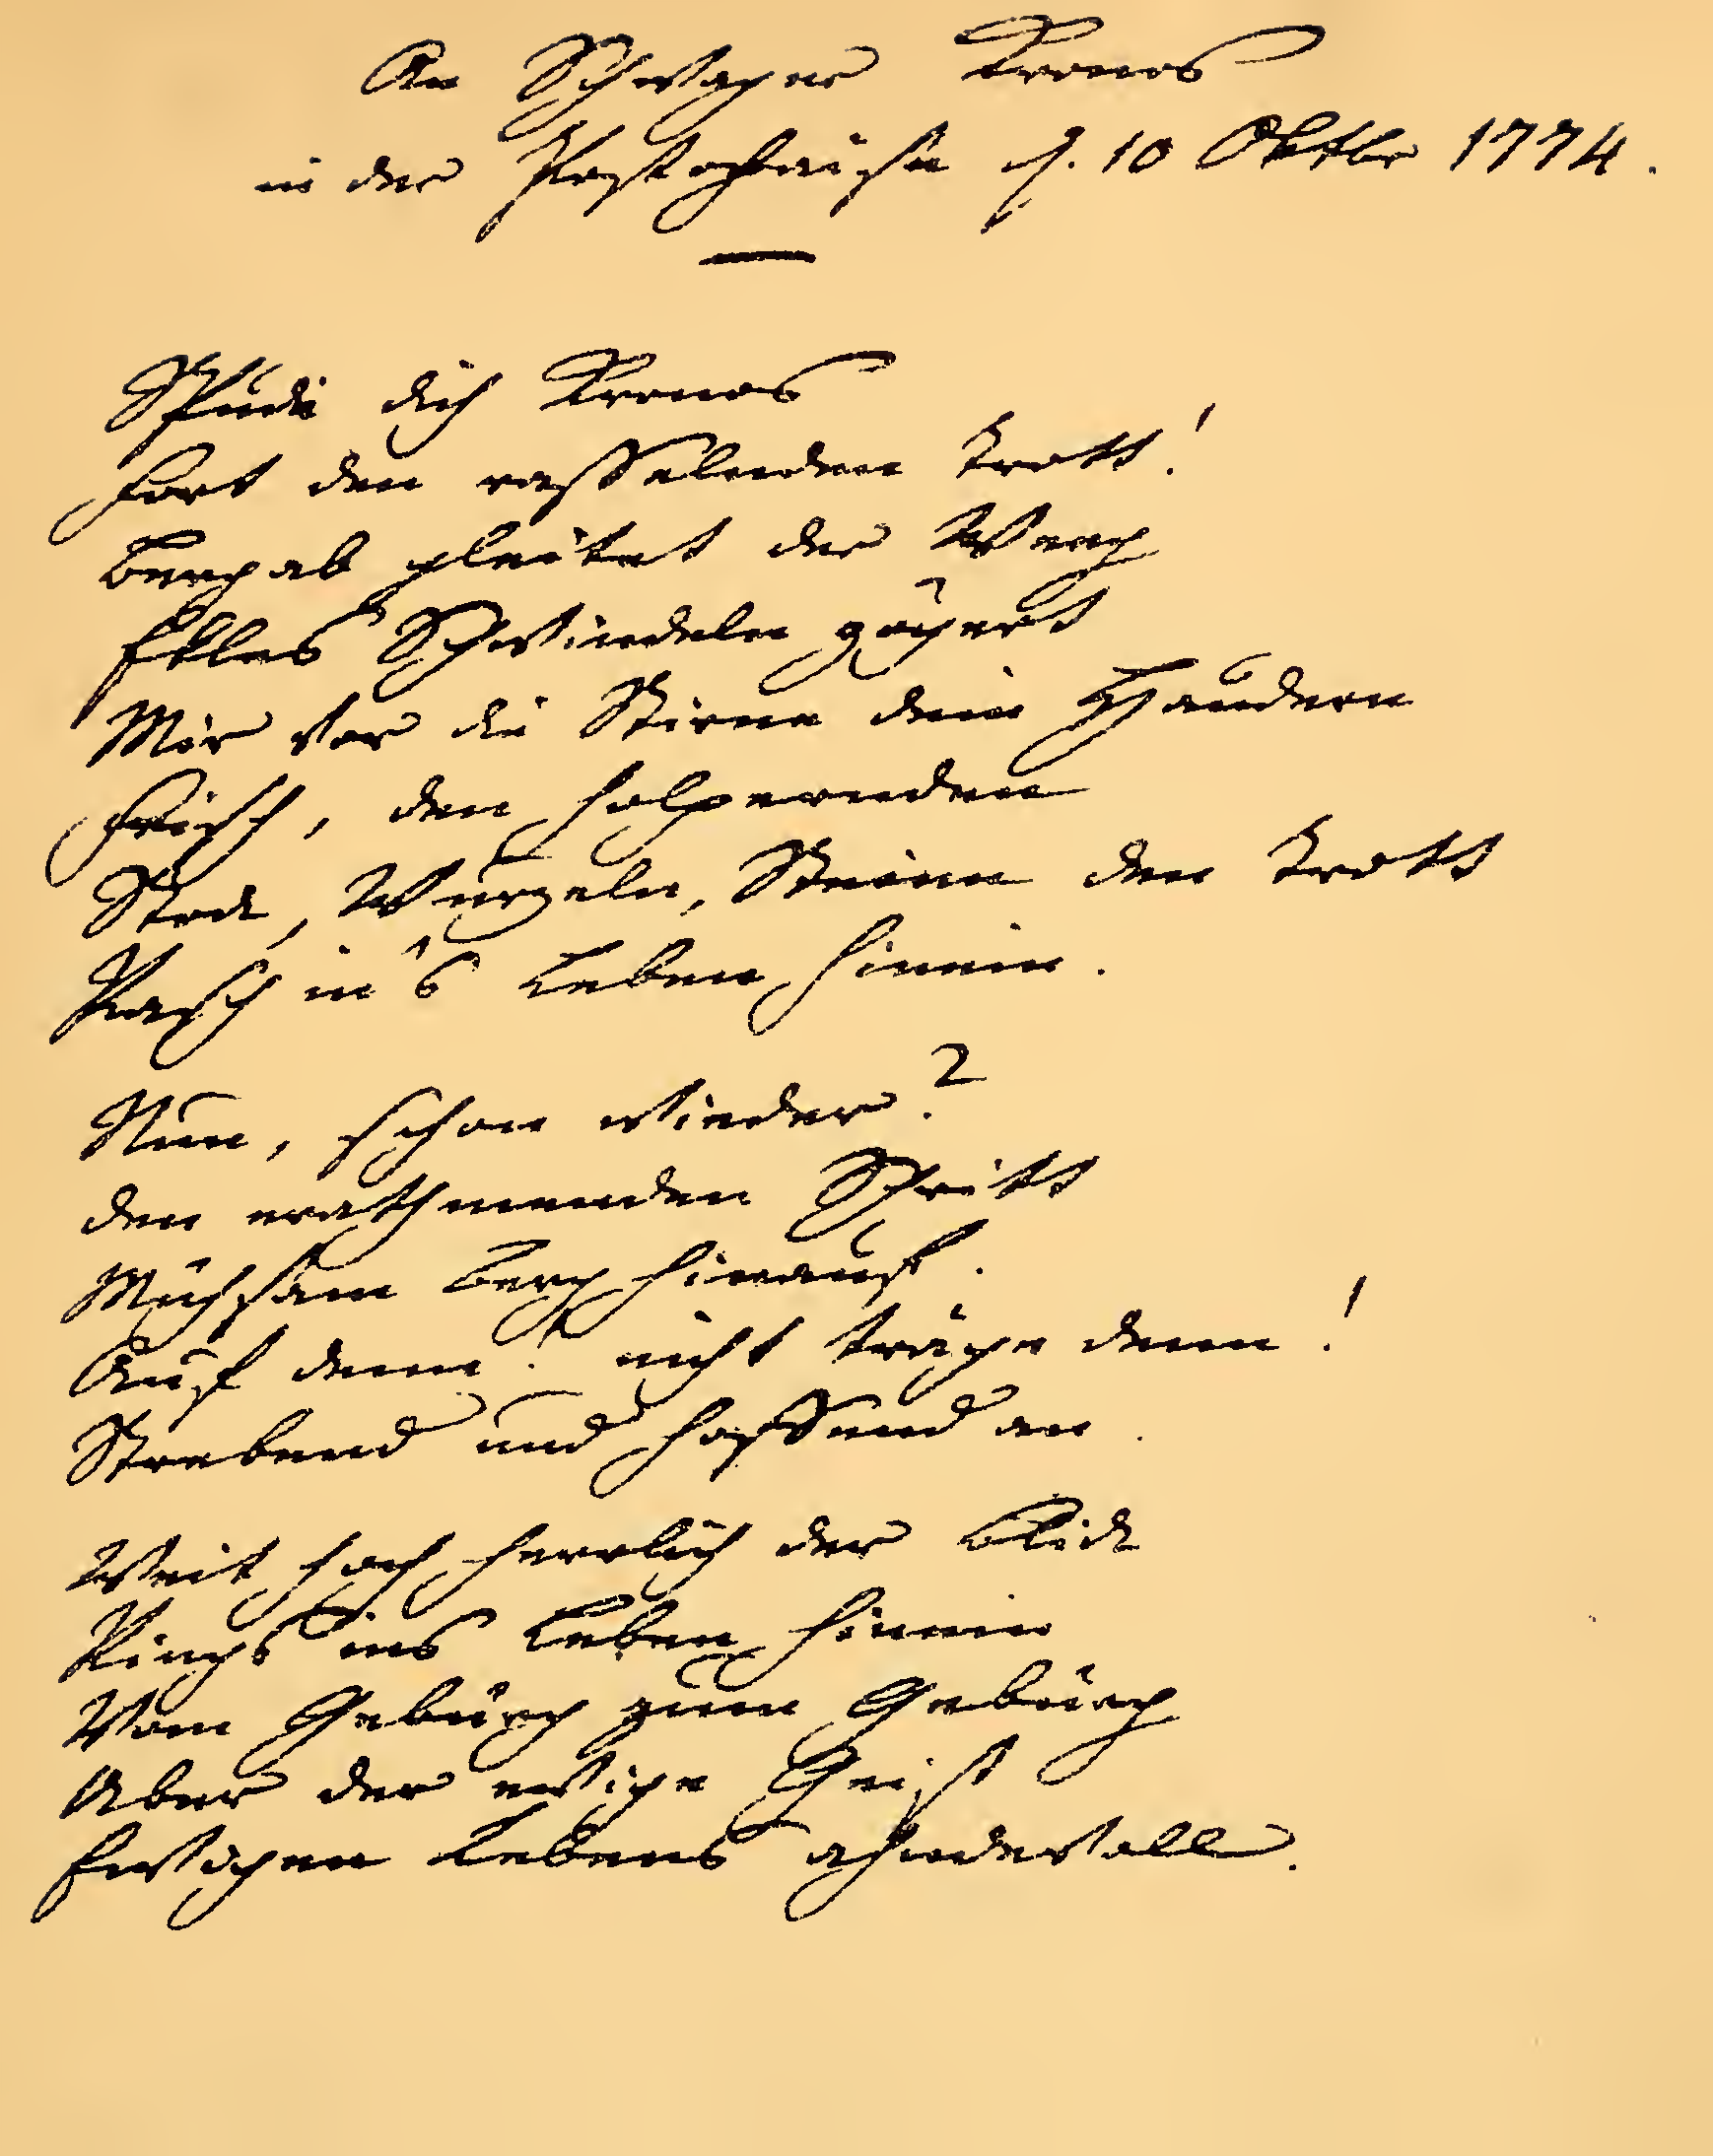 An Schwager Kronos
in der Postchaise d. 10 Oktbr 1774.
Spude dich Kronos
Fort den rasselnden Trott!
Bergab gleitet der Weeg
Ekles Schwindeln zögert
Mir vor die Stirne dein Haudern
Frisch, den holpernden
Stock, Wurzeln, Steine den Trott
Rasch in's Leben hinein.
Nun, schon wieder?
den eratmenden Schritt
Mühsam Berg hinauf.
Auf denn! nicht träge denn!
Strebend und hoffend an.
Weit hoch herrlich der Blick
Rings ins Leben hinein
Vom Gebürg zum Gebürg
Über der ewige Geist
Ewigen Lebens ahndevoll.